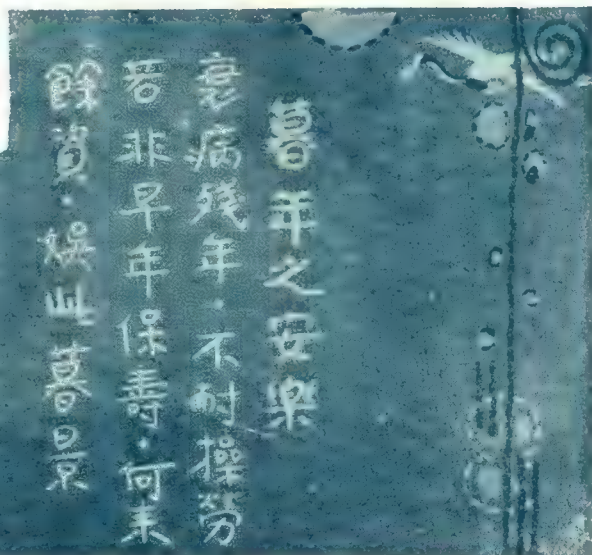 暮年之安樂
衰病殘年·不耐操勞
若非早年保壽·何來
餘資·娛此暮景